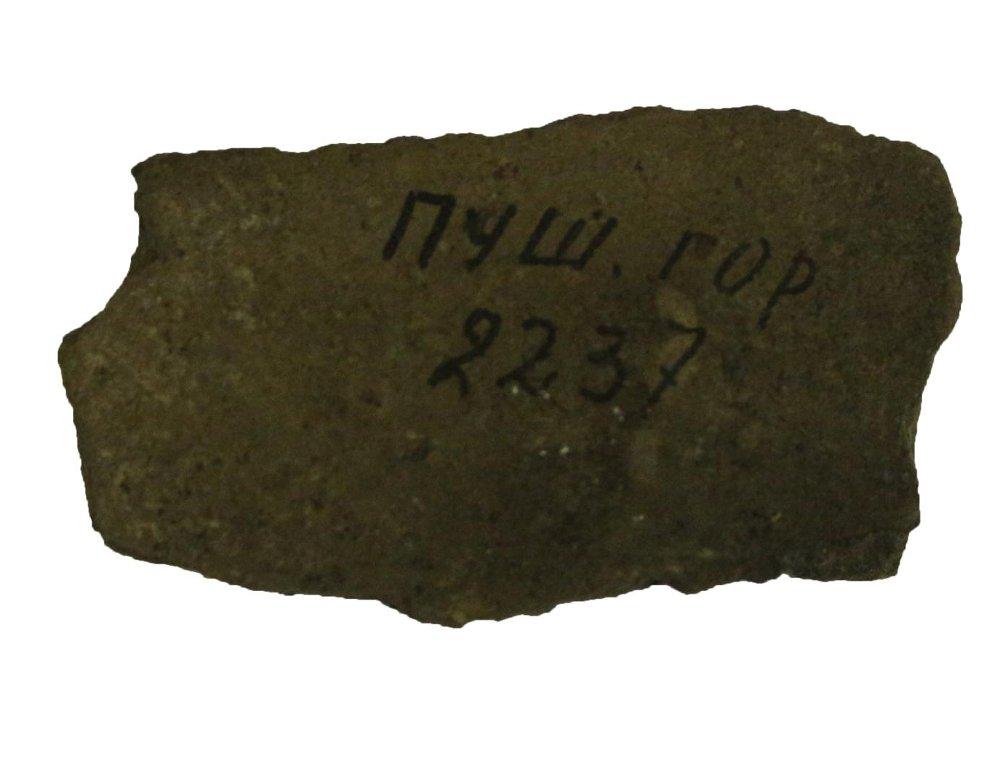 ПУШ. ГОР
2237